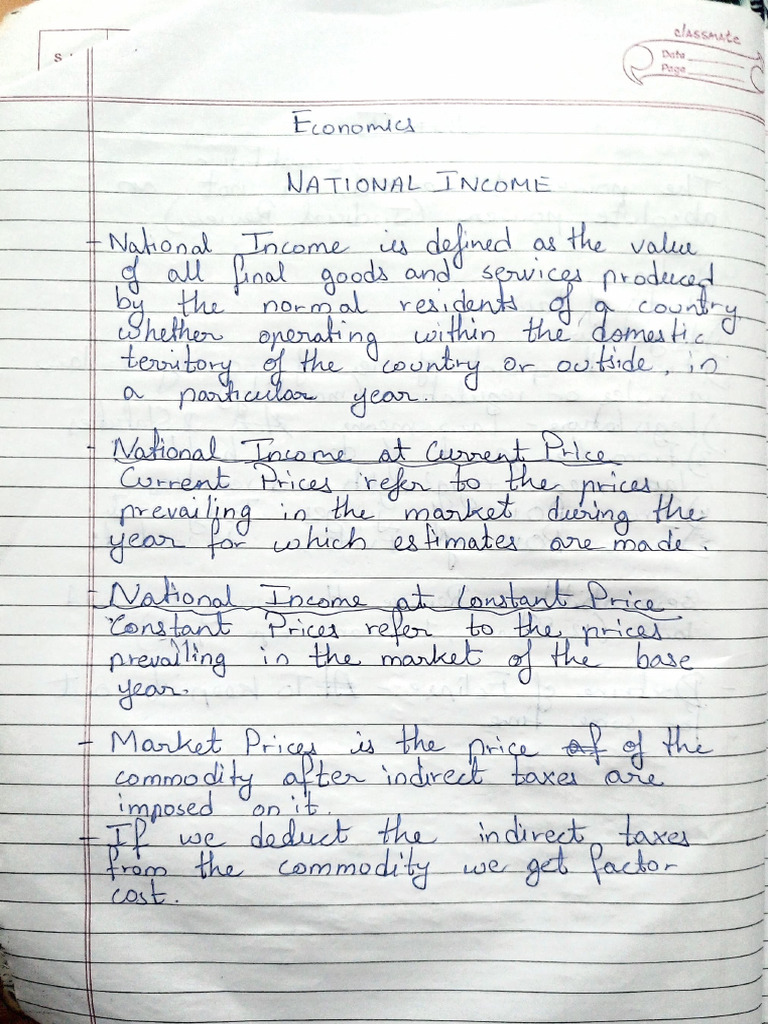 classmate
Date
Page
S
Economics
NATIONAL INCOME
- National Income is defined as the value
of all final goods and services produced
by the normal residents of a country
whether operating within the domestic
territory of the country or outside, in
a particular year.
- National Income at Current Price
Current Prices refer to the prices
prevailing in the market during the
year for which estimates are made.
- National Income at Constant Price
Constant Prices refer to the prices
prevailing in the market of the base
year.
- Market Prices is the price of the
commodity after indirect taxes are
imposed on it.
- If we deduct the indirect taxes
from the commodity we get factor
cost.